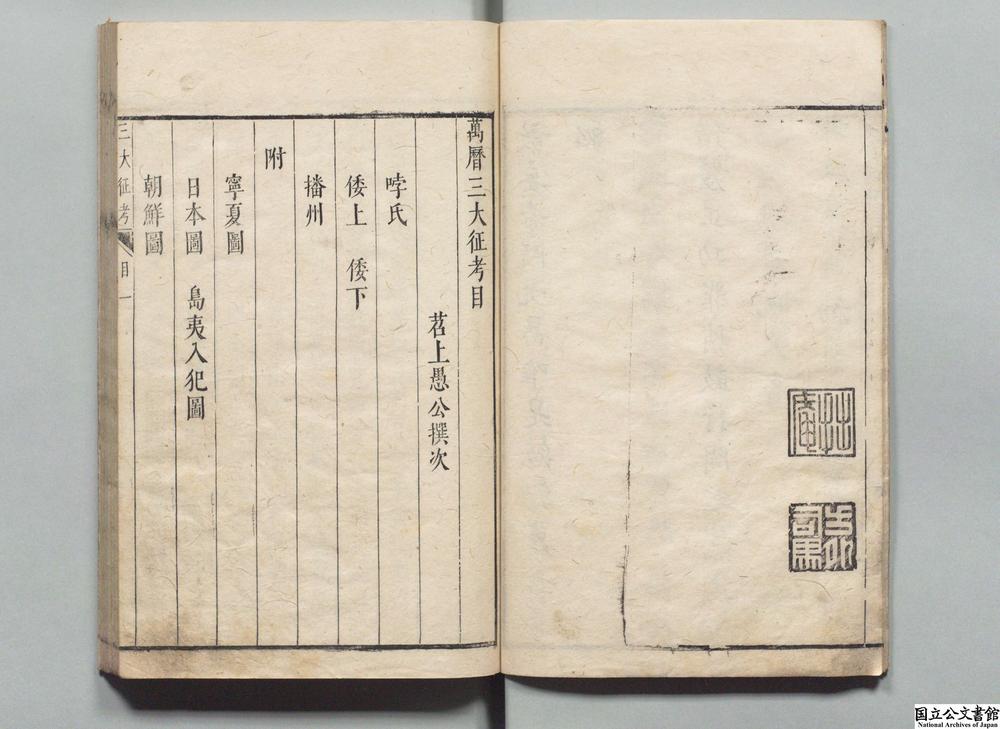 萬曆三大征考目
茗上愚公撰次
哱氏
倭上　倭下
播州
附
寧夏圖
日本圖　島夷入犯圖
朝鮮圖
三大征考
目一
国立公文書館
National Archives of Japan